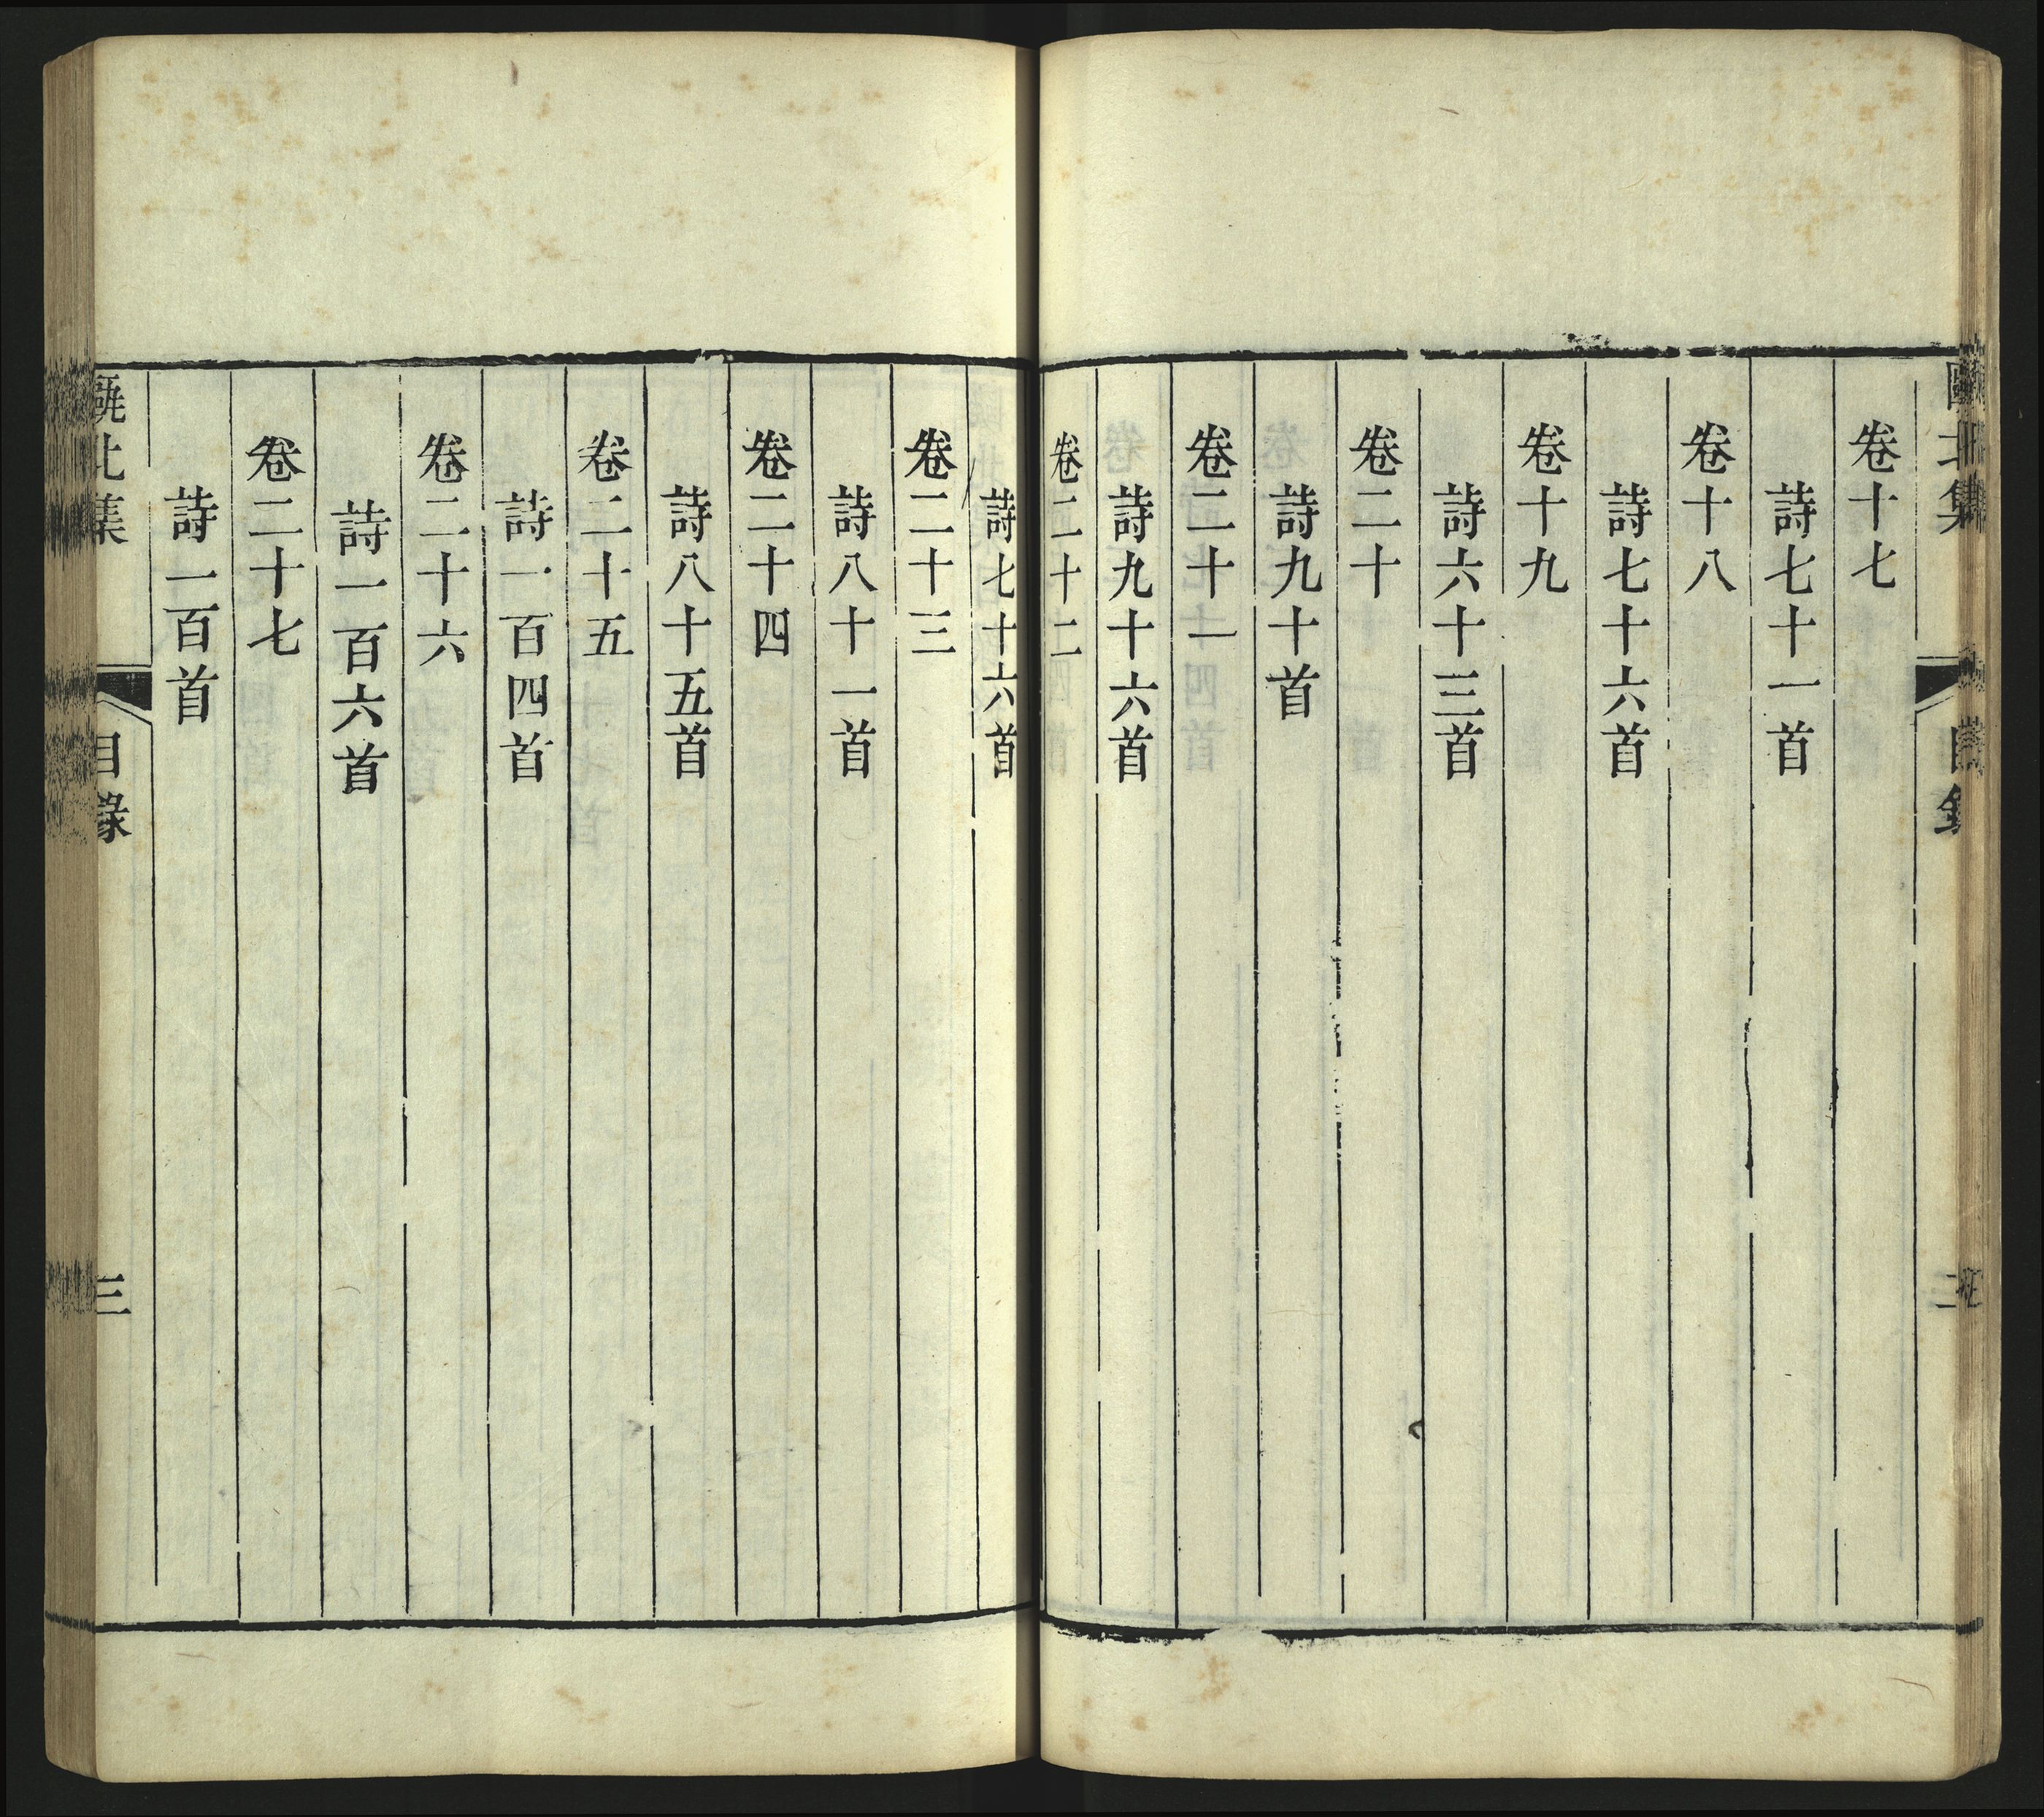 甌北集 目錄
卷十七
詩七十一首
卷十八
詩七十六首
卷十九
詩六十三首
卷二十
詩九十首
卷二十一
詩九十六首
卷二十二
詩七十六首
卷二十三
詩八十一首
卷二十四
詩八十五首
卷二十五
詩一百四首
卷二十六
詩一百六首
卷二十七
詩一百首
甌北集 目錄 三